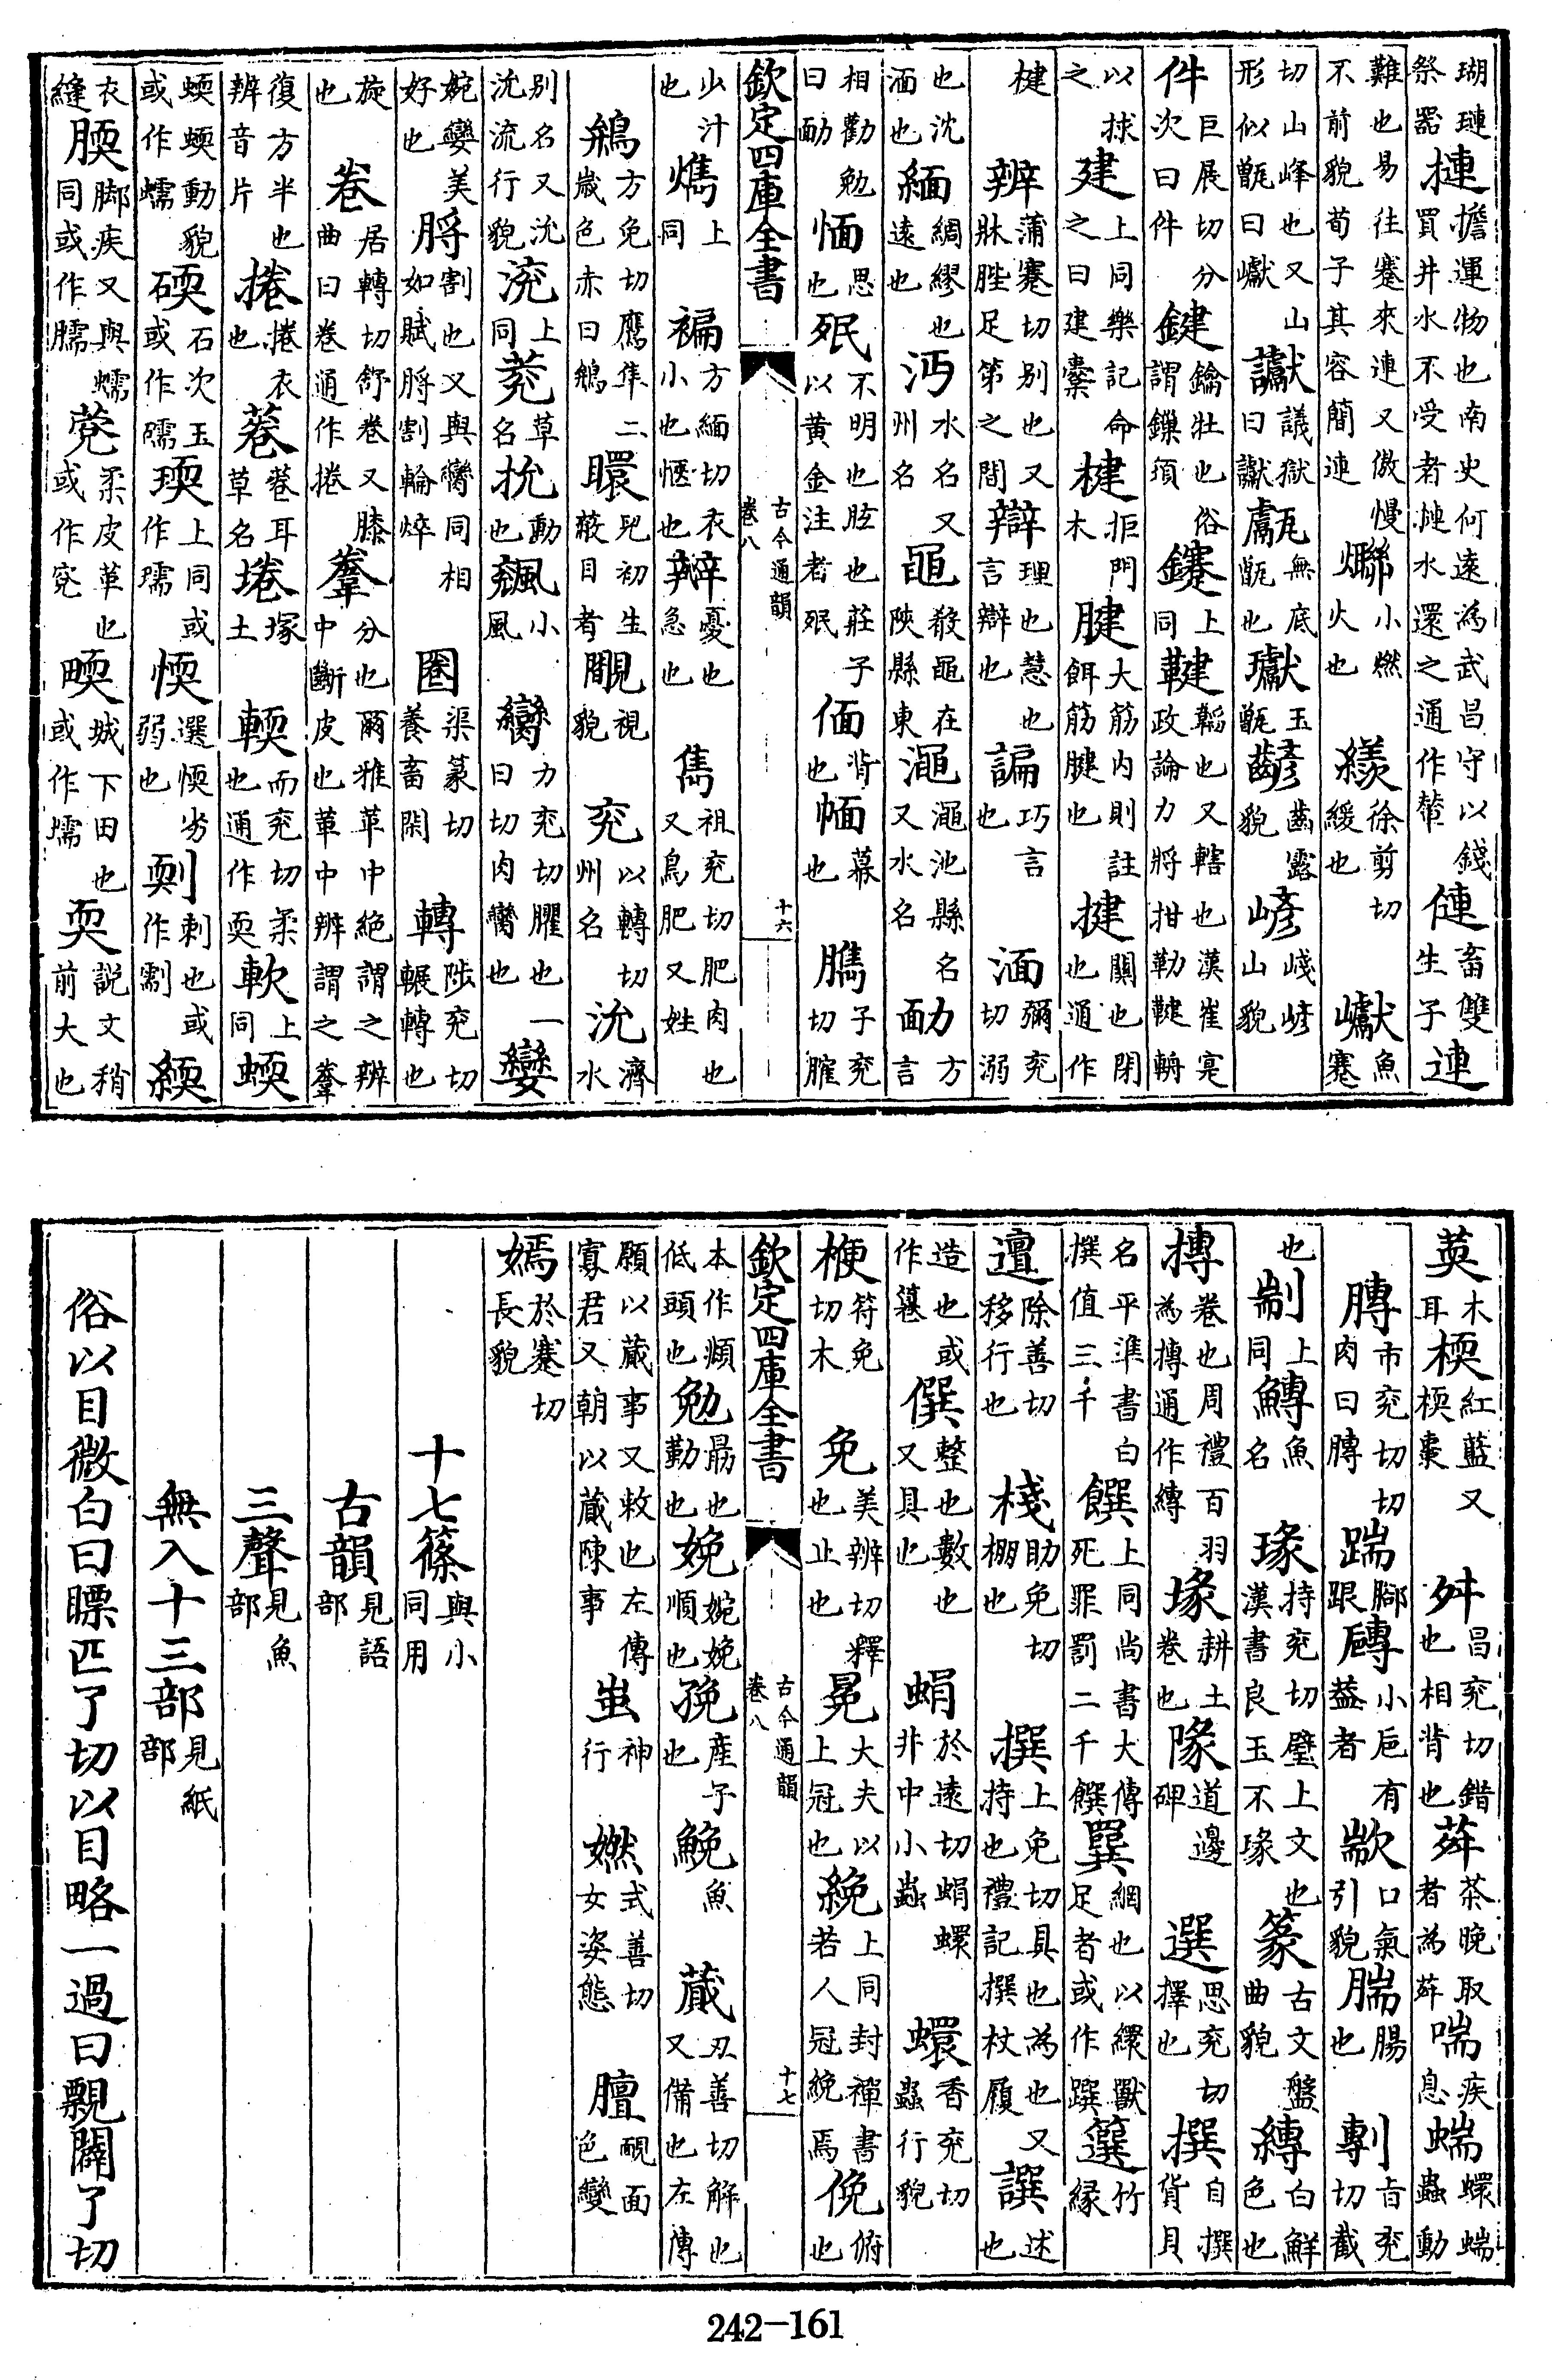 瑚璉祭器摙擔運物也南史何遠為武昌守以錢買井水不受者摙水還之通作輦僆畜雙生子連
難也易往蹇來連又傲慢不前貌荀子其容簡連小燃火也徐剪切緩也巘魚蹇
切山峰也又山形似甑曰巘讞議獄曰讞甗無底甑也瓛玉甑齴齒露貌嵃㟞嵃山貌
件巨展切分次曰件鍵鑰牡也俗謂鏁須鑳上同鞬韜也又轄也漢崔寔政論力將拑勒鞬輈
以捄之建上同樂記命之曰建櫜楗拒門木腱大筋内則註餌筋腱也揵關也閉也通作
楗辨蒲蹇切别也又牀脞足第之間辯理也慧也言辯也諞巧言也湎彌兖切溺
也沈湎也緬綢繆也遠也沔水名又州名黽殽黽在陜縣東澠澠池縣名又水名勔方言
相勸勉曰勔愐思也不明也也莊子以黄金注者偭背也幕也臇子兖切臛
欽定四庫全書 古今通韻卷八 十六
少汁也㷷上同褊方緬切衣小也愜也辡憂也急也雋祖兖切肥肉也又鳥肥又姓
鴘方免切鷹隼二歲色赤曰鴘兒初生蔽目者視貌兖以轉切州名沇濟水
别名又沇沇流行貌渷上同莌草名抁動也小風臠力兖切臞也一曰切肉臠也孌
婉孌美好也脟割也又與臠同相如賦脟割輪焠圈渠篆切養畜閑轉陟兖切輾轉也
旋也卷居轉切舒卷又膝曲曰卷通作捲分也爾雅革中絶謂之辨中斷皮也革中辨謂之
復方半也辨音片捲捲衣也菤菤耳草名埢塚土輭而兖切柔也通作耎軟上同蝡
蝡蝡動貌或作蠕碝石次玉或作礝瑌上同或作瓀愞選愞劣弱也刺也或作緛
衣縫腝脚疾又與蠕同或作臑柔皮革也或作城下田也或作壖耎説文稍前大也
萸木耳㮕紅藍又㮕棗舛昌兖切錯也相背也荈茶晚取者為荈喘疾息蝡蠉蝡蟲動
膞市兖切切肉曰膞踹脚跟磚小巵有蓋者歂口氣引貌腨腸也剸旨兖切截
也剬上同鱄魚名瑑持兖切璧上文也漢書良玉不瑑篆古文盤曲貌縳白鮮色也
摶卷也周禮百羽為摶通作縳耕土卷也隊道邊碑選思兖切擇也撰自撰貨貝
名平準書白撰值三千饌上同尚書大傳死罪罰二千饌網也以繯獸足者或作蹼竹緣
邅除善切移行也棧助免切棚也撰上免切具也為也又持也禮記撰杖屨譔述也
造也或作僎整也數也又具也蜎於遠切蜎蠉井中小蟲蠉香兖切蟲行貌
楩符免切木免美辨切釋也止也冕大夫以上冠也絻上同封禪書若人冠絻焉俛俯也
欽定四庫全書 古今通韻卷八 十七
本作頫低頭也勉勗也勤也娩婉娩順也㝃産子也鮸魚蕆丑善切解也又備也左傳
願以蕆事又敕也左傳寡君又朝以蕆陳事蚩神行㜣式善切女姿態䏙面色變
嫣於蹇切長貌
十七篠與小同用
古韻見語部
三聲見魚部
無入十三部見紙部
俗以目微白曰瞟匹了切以目略一過曰覼闚了切
242—161